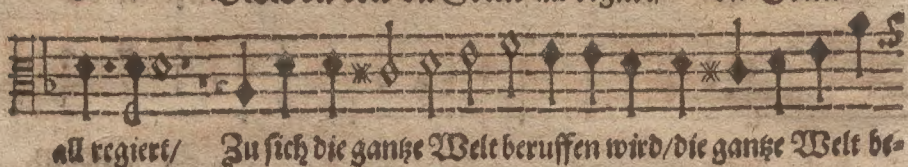 all regiert/ Zu sich die gantze Welt beruffen wird/die gantze Welt be=